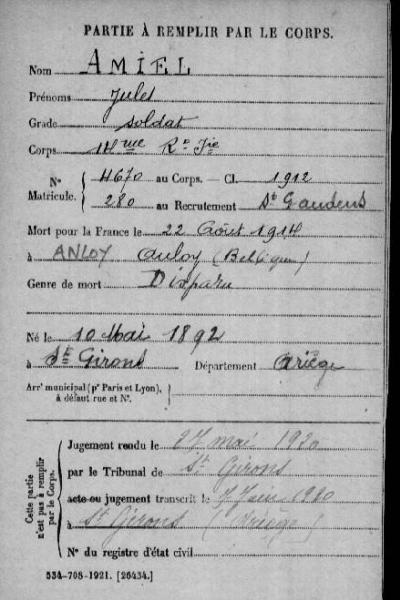 PARTIE À REMPLIR PAR LE CORPS.
Nom AMIEL
Prénoms Jules
Grade soldat
Corps 14ème Rt Jie
N° Matricule. { 4670 au Corps. — Cl. 1912
280 au Recrutement St Gaudens
Mort pour la France le 22 Août 1914
à ANLOY Anloy (Belgique)
Genre de mort Disparu
Né le 10 Mai 1892
à St Girons Département Ariège
Arrt municipal (pr Paris et Lyon), à défaut rue et N°. {
Cette partie n'est pas à remplir par le Corps.
Jugement rendu le 27 mai 1920
par le Tribunal de St Girons
acte ou jugement transcrit le 7 Juin 1920
à St Girons (Ariège)
N° du registre d'état civil
534-708-1921. [26434.]